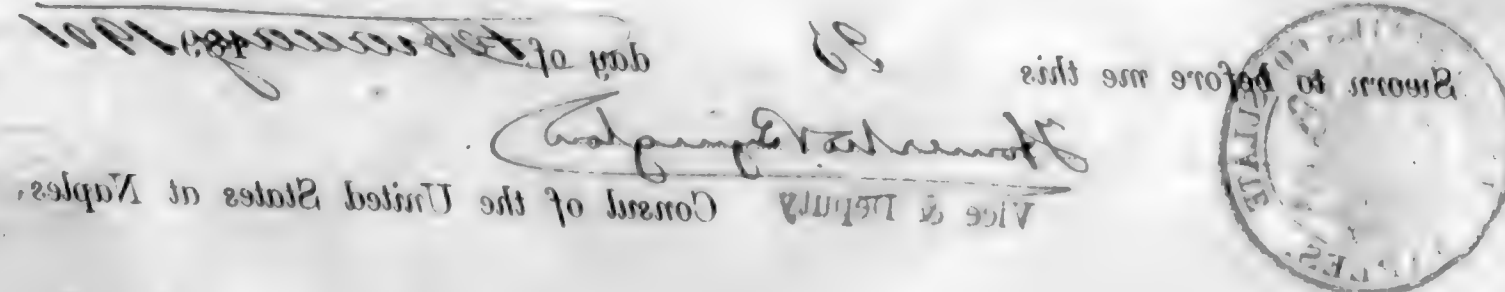 Sworn to before me this day of February 1901
Homer M. Byington
Vice & Deputy Consul of the United States at Naples.